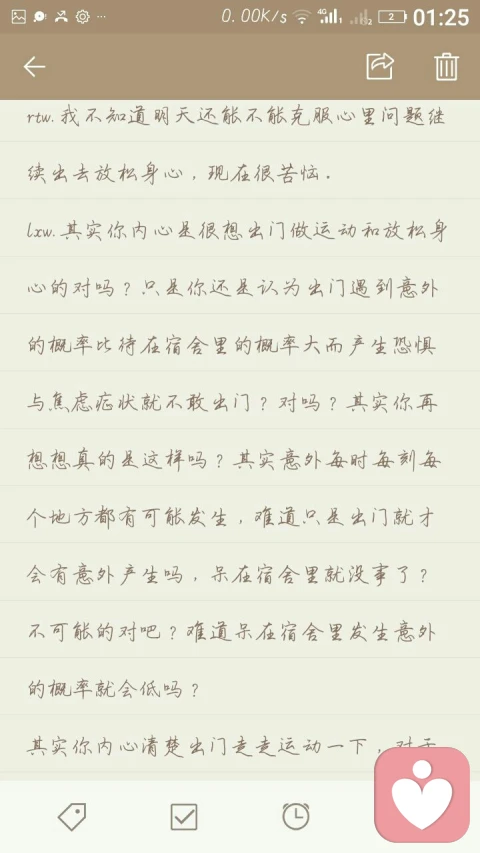 0.00K/s 4G 2 2 01:25
rtw.我不知道明天还能不能克服心里问题继
续出去放松身心，现在很苦恼.
lxw.其实你内心是很想出门做运动和放松身
心的对吗？只是你还是认为出门遇到意外
的概率比待在宿舍里的概率大而产生恐惧
与焦虑症状就不敢出门？对吗？其实你再
想想真的是这样吗？其实意外每时每刻每
个地方都有可能发生，难道只是出门就才
会有意外产生吗，呆在宿舍里就没事了？
不可能的对吧？难道呆在宿舍里发生意外
的概率就会低吗？
其实你内心清楚出门走走运动一下，对于